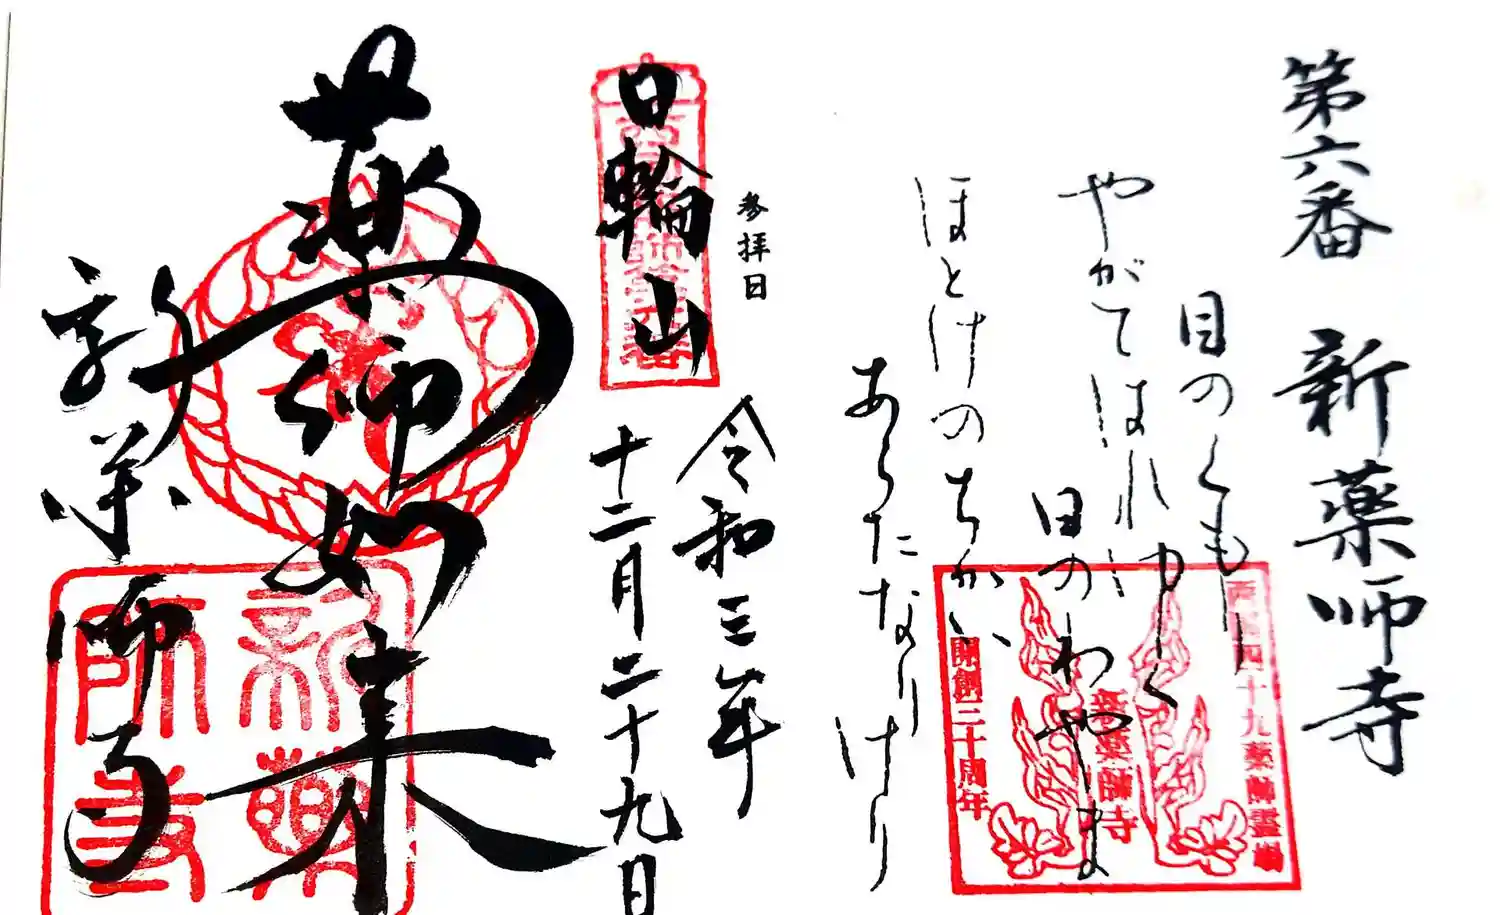 第六番 新薬師寺
目のくもり
やがてはれゆく
日のわやま
ほとけのちかい
あらたなりけり
西国四十九薬師霊場
新薬師寺
開創三十周年
参拝日
令和三年
十二月二十九日
日輪山
薬師如来
新薬師寺
新薬
師寺